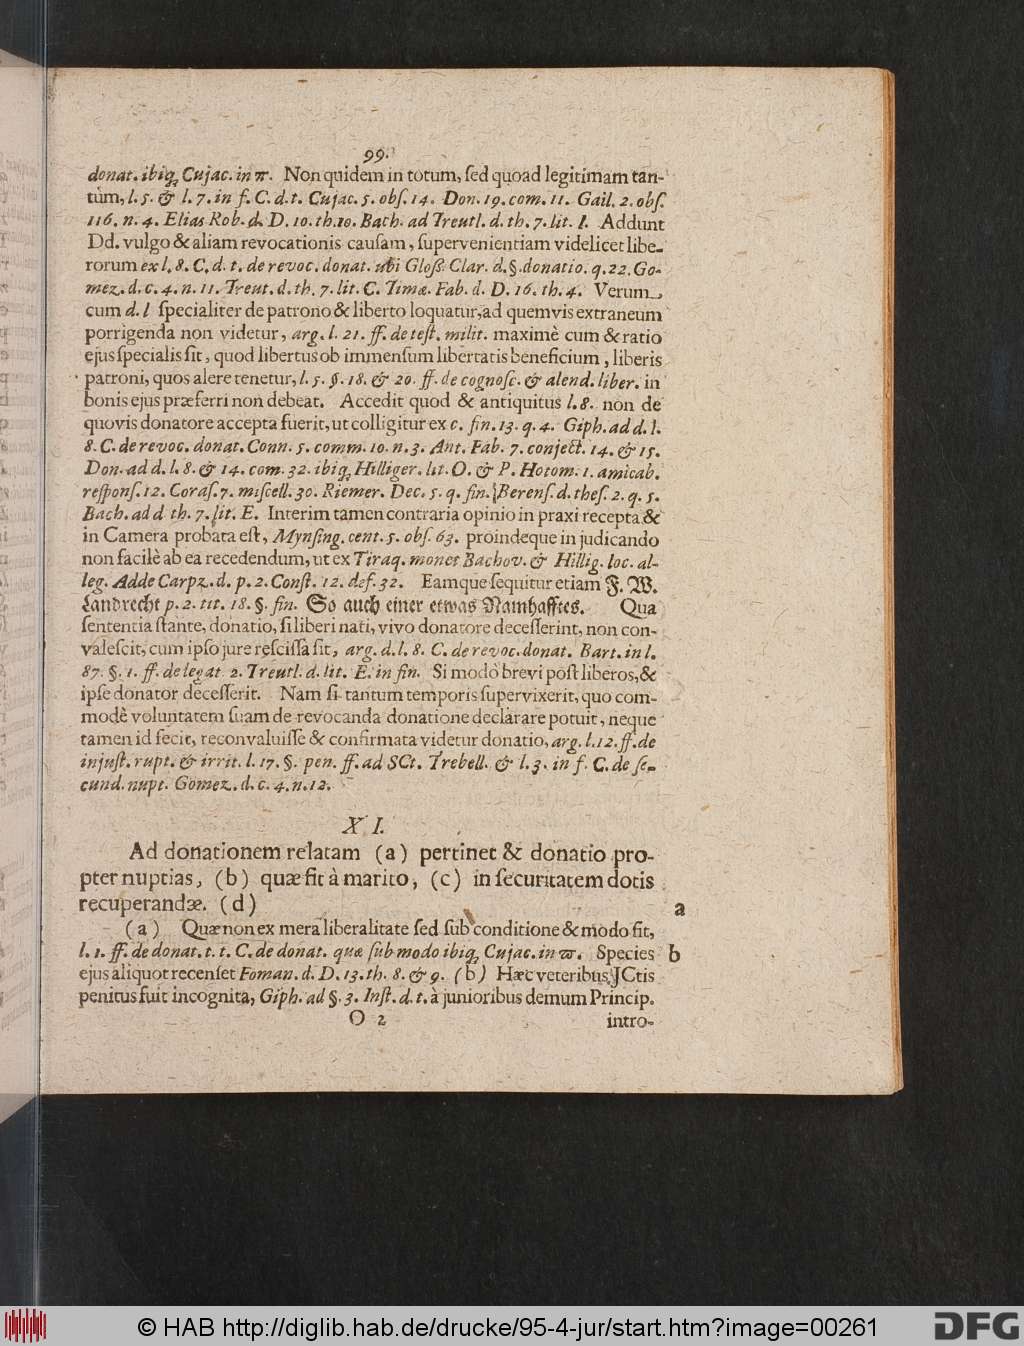 99.
donat. ibiq; Cujac. in π. Non quidem in totum, sed quoad legitimam tan-
tùm, l. 5. & l. 7. in f. C. d. t. Cujac. 5. obs. 14. Don. 19. com. 11. Gail. 2. obs.
116. n. 4. Elias Rob. d. D. 10. th. 10. Bach. ad Treutl. d. th. 7. lit. l. Addunt
Dd. vulgo & aliam revocationis causam, supervenientiam videlicet libe-
rorum ex l. 8. C. d. t. de revoc. donat. ubi Gloß. Clar. d. §. donatio. q. 22. Go-
mez. d. c. 4. n. 11. Treut. d. th. 7. lit. C. Timæ. Fab. d. D. 16. th. 4. Verum,
cum d. l specialiter de patrono & liberto loquatur, ad quemvis extraneum
porrigenda non videtur, arg. l. 21. ff. de test. milit. maximè cum & ratio
ejus specialis sit, quod libertus ob immensum libertatis beneficium, liberis
patroni, quos alere tenetur, l. 5. §. 18. & 20. ff. de cognosc. & alend. liber. in
bonis ejus præferri non debeat. Accedit quod & antiquitus l. 8. non de
quovis donatore accepta fuerit, ut colligitur ex c. fin. 13. q. 4. Giph. ad d. l.
8. C. de revoc. donat. Conn. 5. comm. 10. n. 3. Ant. Fab. 7. conject. 14. & 15.
Don. ad d. l. 8. & 14. com. 32. ibiq; Hilliger. lit. O. & P. Hotom. 1. amicab.
respons. 12. Coras. 7. miscell. 30. Riemer. Dec. 5. q. fin. Berens. d. thes. 2. q. 5.
Bach. ad d th. 7. lit. E. Interim tamen contraria opinio in praxi recepta &
in Camera probata est, Mynsing. cent. 5. obs. 63. proindeque in judicando
non facilè ab ea recedendum, ut ex Tiraq. monet Bachov. & Hillig. loc. al-
leg. Adde Carpz. d. p. 2. Const. 12. def. 32. Eamque sequitur etiam F. W.
Landrecht p. 2. tit. 18. §. fin. So auch einer etwas Namhafftes. Qua
sententia stante, donatio, si liberi nati, vivo donatore decesserint, non con-
valescit, cum ipso jure rescissa sit, arg. d. l. 8. C. de revoc. donat. Bart. in l.
87. §. 1. ff. de legat 2. Treutl. d. lit. E. in fin. Si modò brevi post liberos, &
ipse donator decesserit. Nam si tantum temporis supervixerit, quo com-
modè voluntatem suam de revocanda donatione declarare potuit, neque
tamen id fecit, reconvaluisse & confirmata videtur donatio, arg. l. 12. ff. de
injust. rupt. & irrit. l. 17. §. pen. ff. ad SCt. Trebell. & l. 3. in f. C. de se-
cund. nupt. Gomez. d. c. 4. n. 12.
XI.
Ad donationem relatam (a) pertinet & donatio pro-
pter nuptias, (b) quæ fit à marito, (c) in securitatem dotis
recuperandæ. (d)
a
(a) Quæ non ex mera liberalitate sed sub conditione & modo fit,
l. 1. ff. de donat. t. t. C. de donat. quæ sub modo ibiq; Cujac. in ϖ. Species b
ejus aliquot recenset Foman. d. D. 13. th. 8. & 9. (b) Hæc veteribus JCtis
penitus fuit incognita, Giph. ad §. 3. Inst. d. t. à junioribus demum Princip.
O 2 intro-
© HAB http://diglib.hab.de/drucke/95-4-jur/start.htm?image=00261
DFG